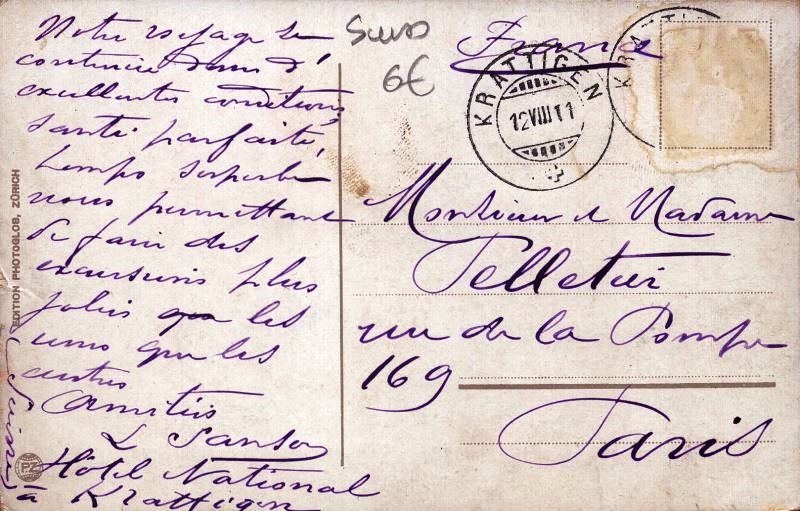 Notre voyage se
continue dans d'
excellentes conditions,
santé parfaite,
temps superbe
nous permettant
de faire des
excursions plus
jolies que les
unes que les
autres
Amitiés
L Sanson
Hôtel National
à Krattigen
(Suisse)
EDITION PHOTOGLOB, ZÜRICH
PZ
Suiss
6€
France
KRATTIGEN
12 VIII 11
KRATTI
Monsieur et Madame
Pelletier
rue de la Pompe
169
Paris